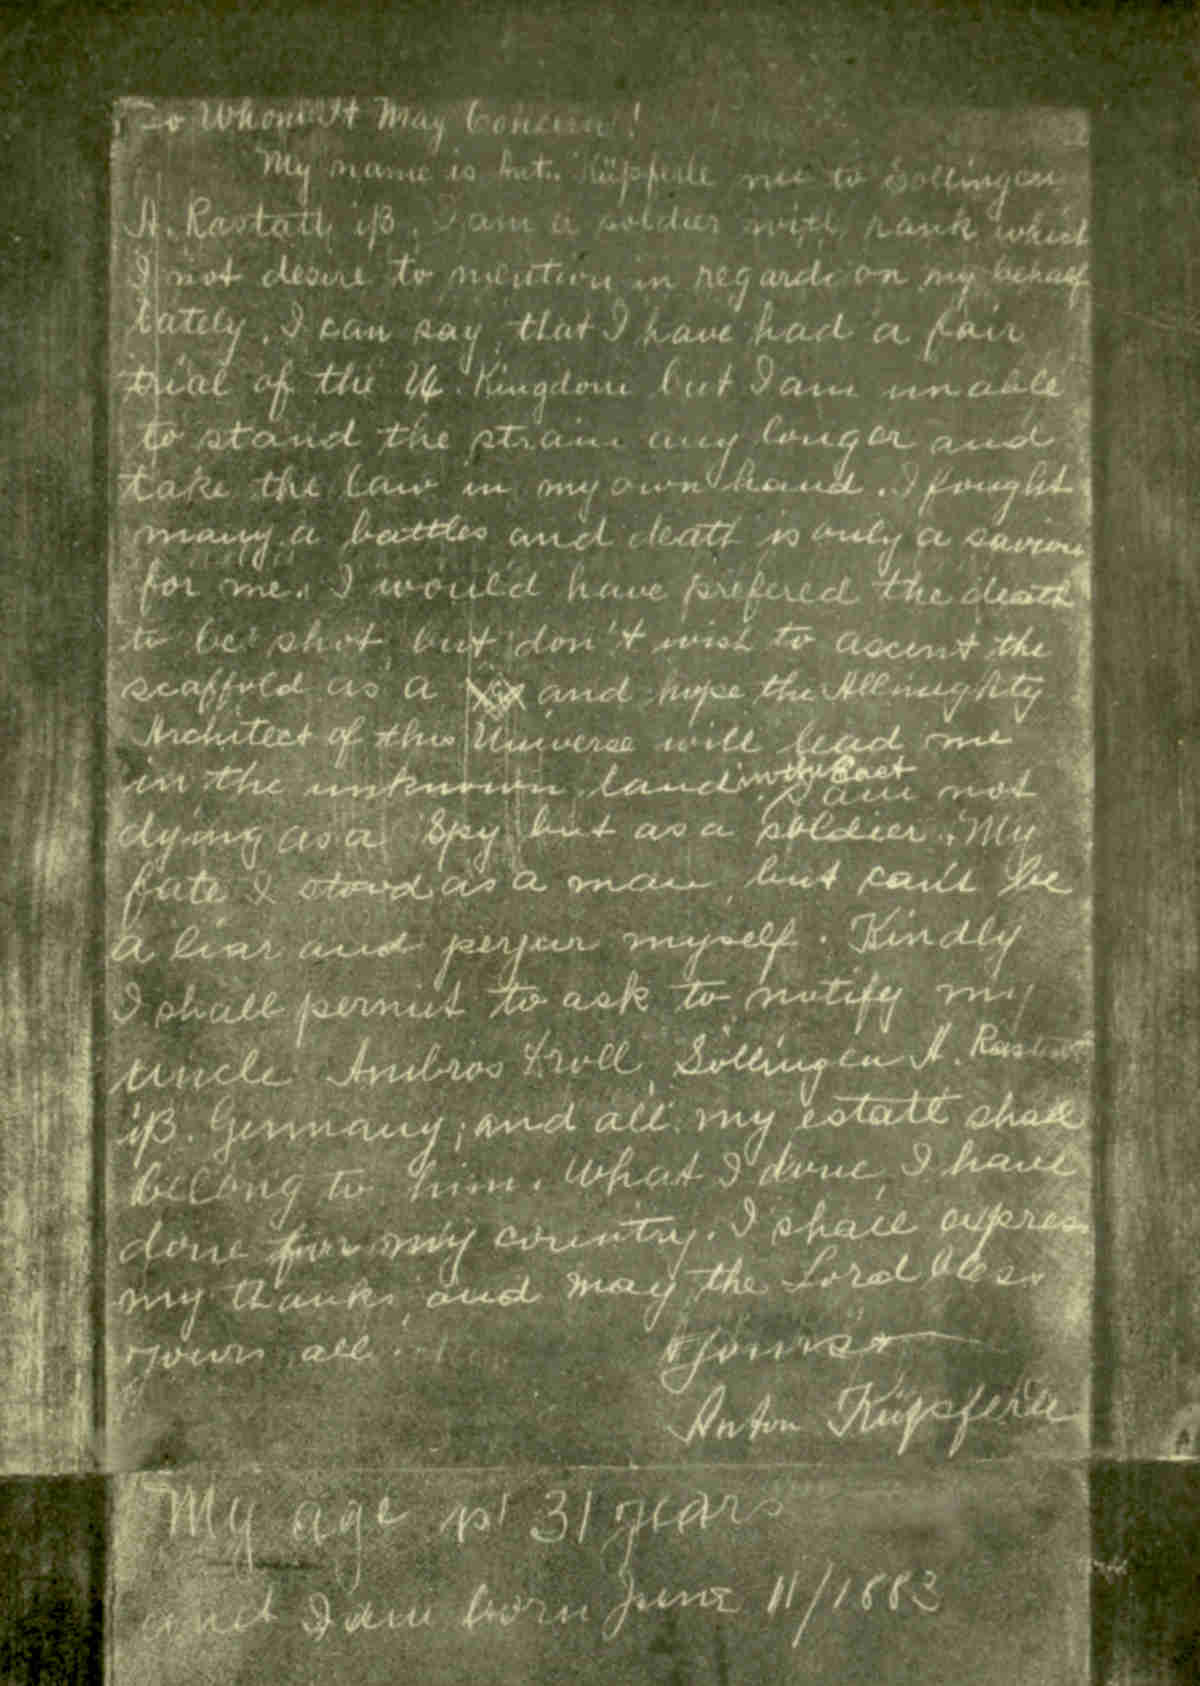 To Whom It May Concern!
My name is Ant. Küpferle nee to Sollingen
A. Rastatt i/B. I am a soldier with rank which
I not desire to mention in regards on my behalf
lately. I can say that I have had a fair
trial of the U. Kingdom but I am unable
to stand the strain any longer and
take the law in my own hand. I fought
many a battles and death is only a saviour
for me. I would have prefered the death
to be shot but don't wish to ascent the
scaffold as a and hope the Allmighty
Architect of this Universe will lead me
in the unknown land in the East. I am not
dying as a Spy but as a soldier. My
fate I stood as a man but can't be
a liar and perjur myself. Kindly
I shall permit to ask to notify my
uncle Ambros Droll, Söllingen A. Rastatt
i/B. Germany, and all my estatt shall
belong to him. What I done I have
done for my country. I shall expres
my thanks and may the Lord bless
yours all.
Yours
Anton Küpferle
My age is 31 years
and I am born June 11/1883